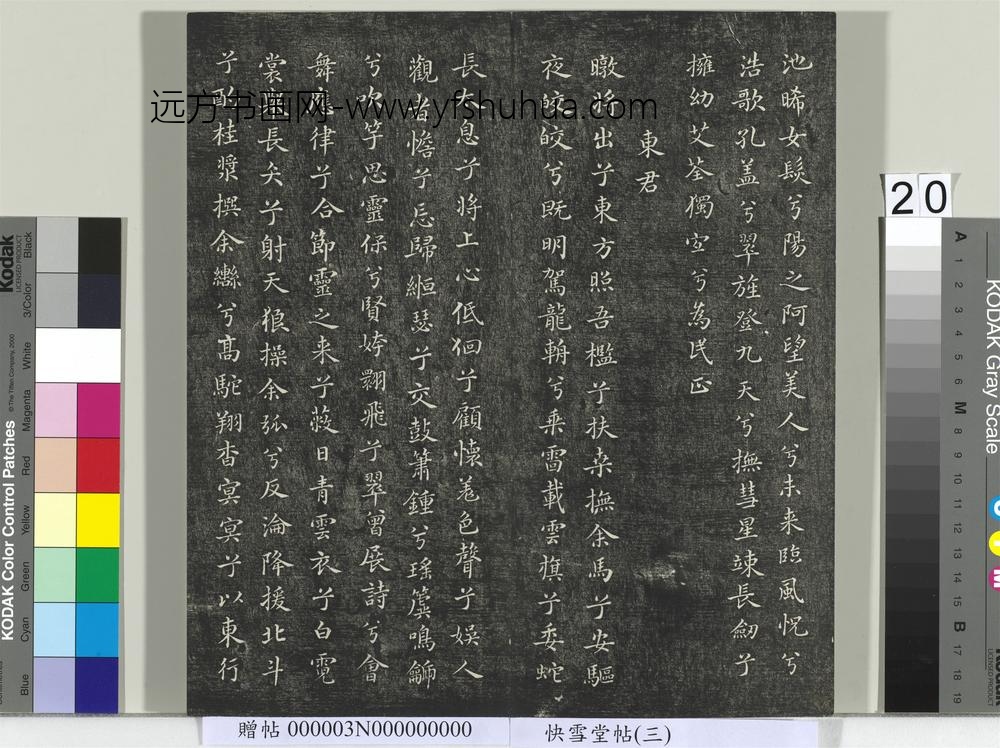 池晞女髮兮陽之阿望美人兮未来臨風怳兮
浩歌孔盖兮翠旌登九天兮撫彗星竦長劒兮
擁幼艾荃獨宜兮為民正
東君
暾將出兮東方照吾檻兮扶桒撫余馬兮安驅
夜皎皎兮既明駕龍輈兮乗雷載雲旗兮委蛇
長太息兮將上心低佪兮顧懷羗色聲兮娱人
觀者憺兮忘歸緪瑟兮交鼓簫鍾兮瑶簴鳴龥
兮吹竽思靈保兮賢姱翾飛兮翠曾展詩兮會
舞應律兮合節靈之来兮蔽日青雲衣兮白霓
裳舉長矢兮射天狼操余弧兮反淪降援北斗
兮酌桂漿撰余轡兮髙駝翔杳冥冥兮以東行
远方书画网-www.yfshuhua.com
20
贈帖 000003N000000000
快雪堂帖(三)
Kodak
LICENSED PRODUCT
KODAK Color Control Patches
© The Tiffen Company, 2000
Blue
Cyan
Green
Yellow
Red
Magenta
White
3/Color
Black
KODAK Gray Scale
A 1 2 3 4 5 6 M 8 9 10 11 12 13 14 15 B 17 18 19